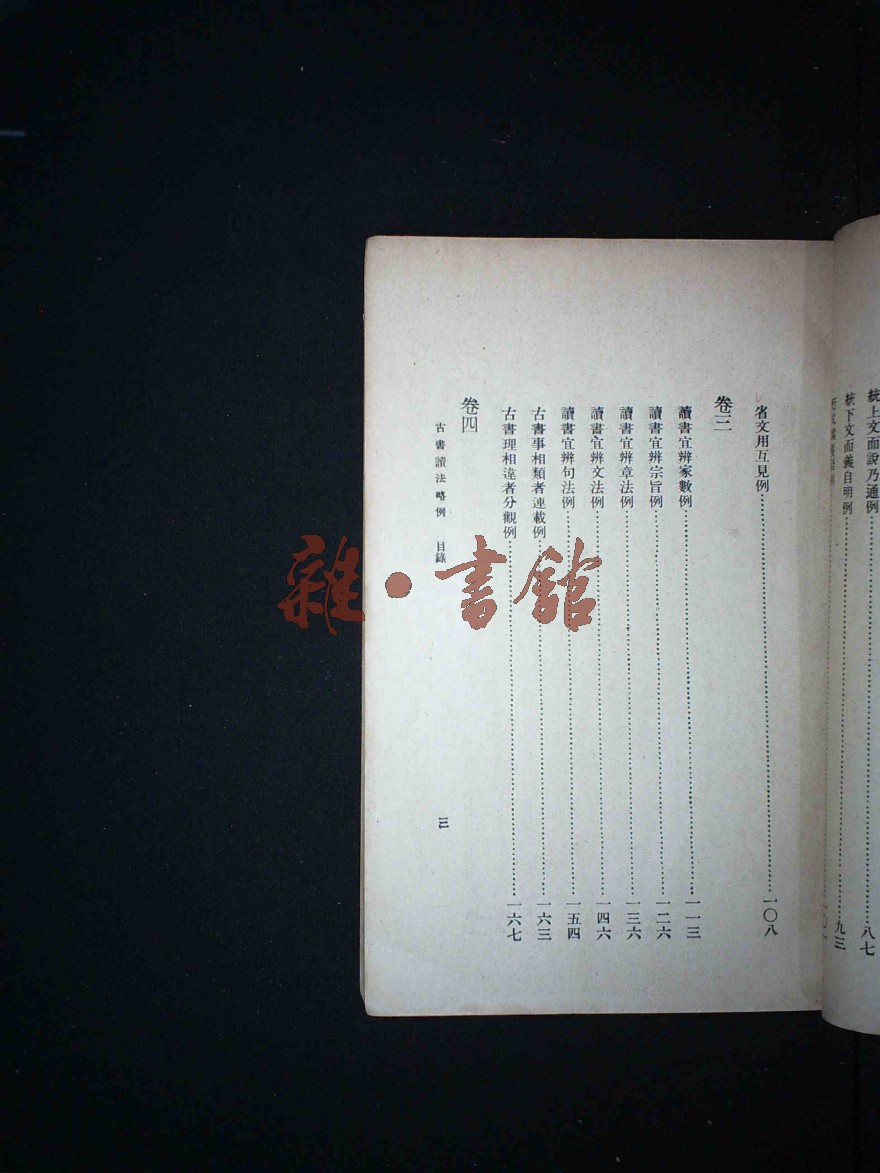 統上文而說乃通例……八七
統下文而義自明例……九三
省文用互見例……一〇八
卷三
讀書宜辨家數例……一一三
讀書宜辨宗旨例……一二六
讀書宜辨章法例……一三六
讀書宜辨文法例……一四六
讀書宜辨句法例……一五四
古書事相類者連載例……一六三
古書理相違者分觀例……一六七
卷四
古書讀法略例 目錄 三
雜·書館